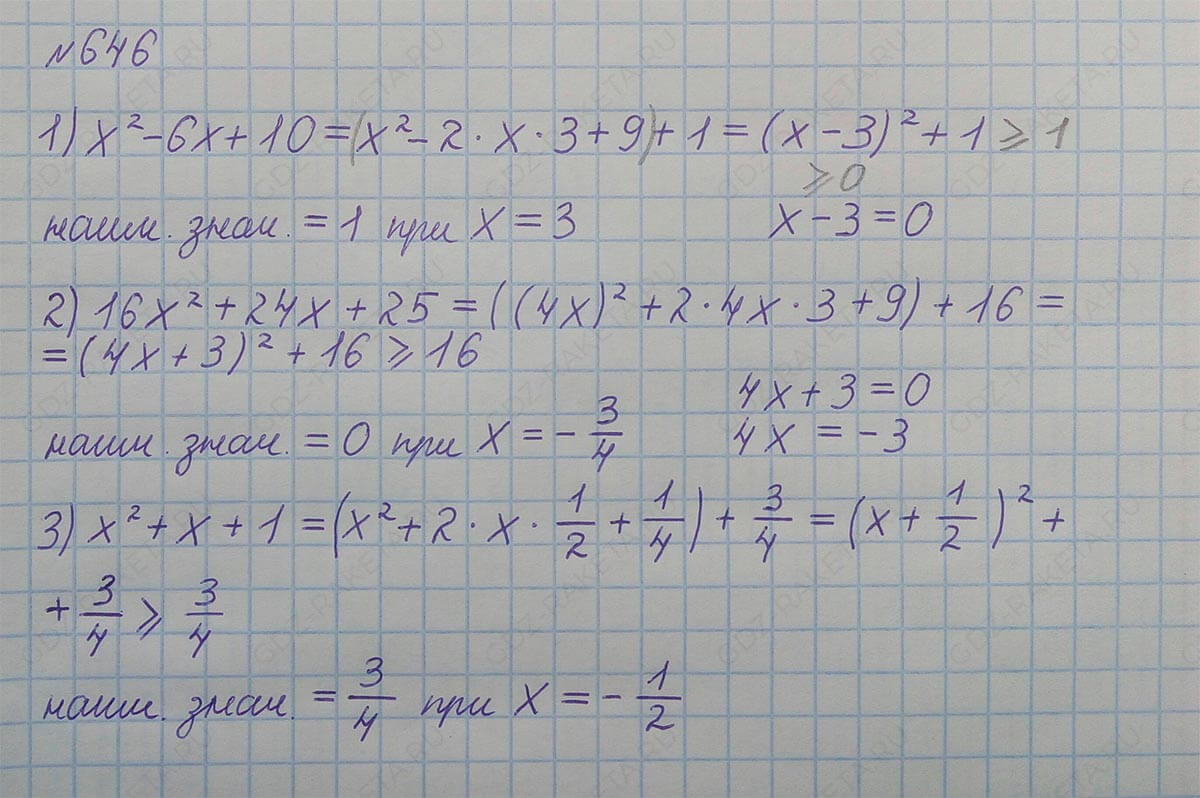 №646
1) x² - 6x + 10 = (x² - 2 · x · 3 + 9) + 1 = (x - 3)² + 1 ⩾ 1
⩾ 0
наим. знач. = 1 при x = 3 x - 3 = 0
2) 16x² + 24x + 25 = ((4x)² + 2 · 4x · 3 + 9) + 16 =
= (4x + 3)² + 16 ⩾ 16
4x + 3 = 0
наим. знач. = 0 при x = - 3/4 4x = -3
3) x² + x + 1 = (x² + 2 · x · 1/2 + 1/4) + 3/4 = (x + 1/2)² +
+ 3/4 ⩾ 3/4
наим. знач. = 3/4 при x = - 1/2
GDZ-RAKETA.RU